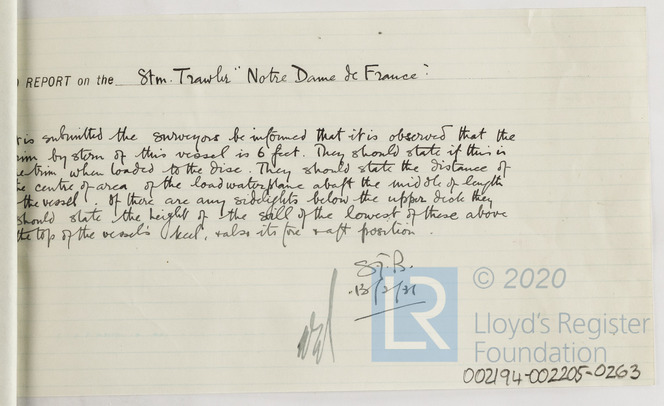 ) REPORT on the Stm. Trawler "Notre Dame de France".
t is submitted the surveyors be informed that it is observed that the
rim by stern of this vessel is 6 feet. They should state if this is
e trim when loaded to the disc. They should state the distance of
he centre of area of the loadwaterplane abaft the middle of length
the vessel. If there are any sidelights below the upper deck they
should state the height of the sill of the lowest of these above
the top of the vessel's keel, & also its fore & aft position.
13/2/31
LR
© 2020
Lloyd's Register
Foundation
002194-002205-0263